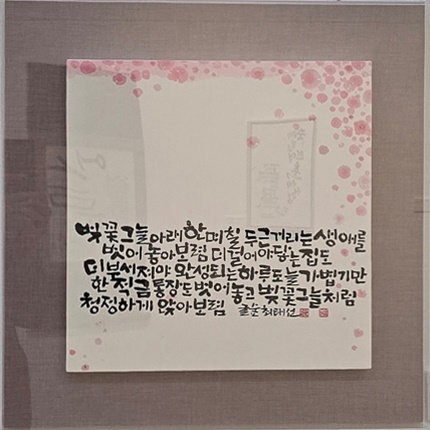 벚꽃그늘아래 한며칠 두근거리는 생애를
벗어놓아보렴 더걸어야닿는집도
더부서져야 완성되는 하루도늘가볍기만
한적금통장도벗어놓고 벚꽃그늘처럼
청정하게 앉아보렴 최태선